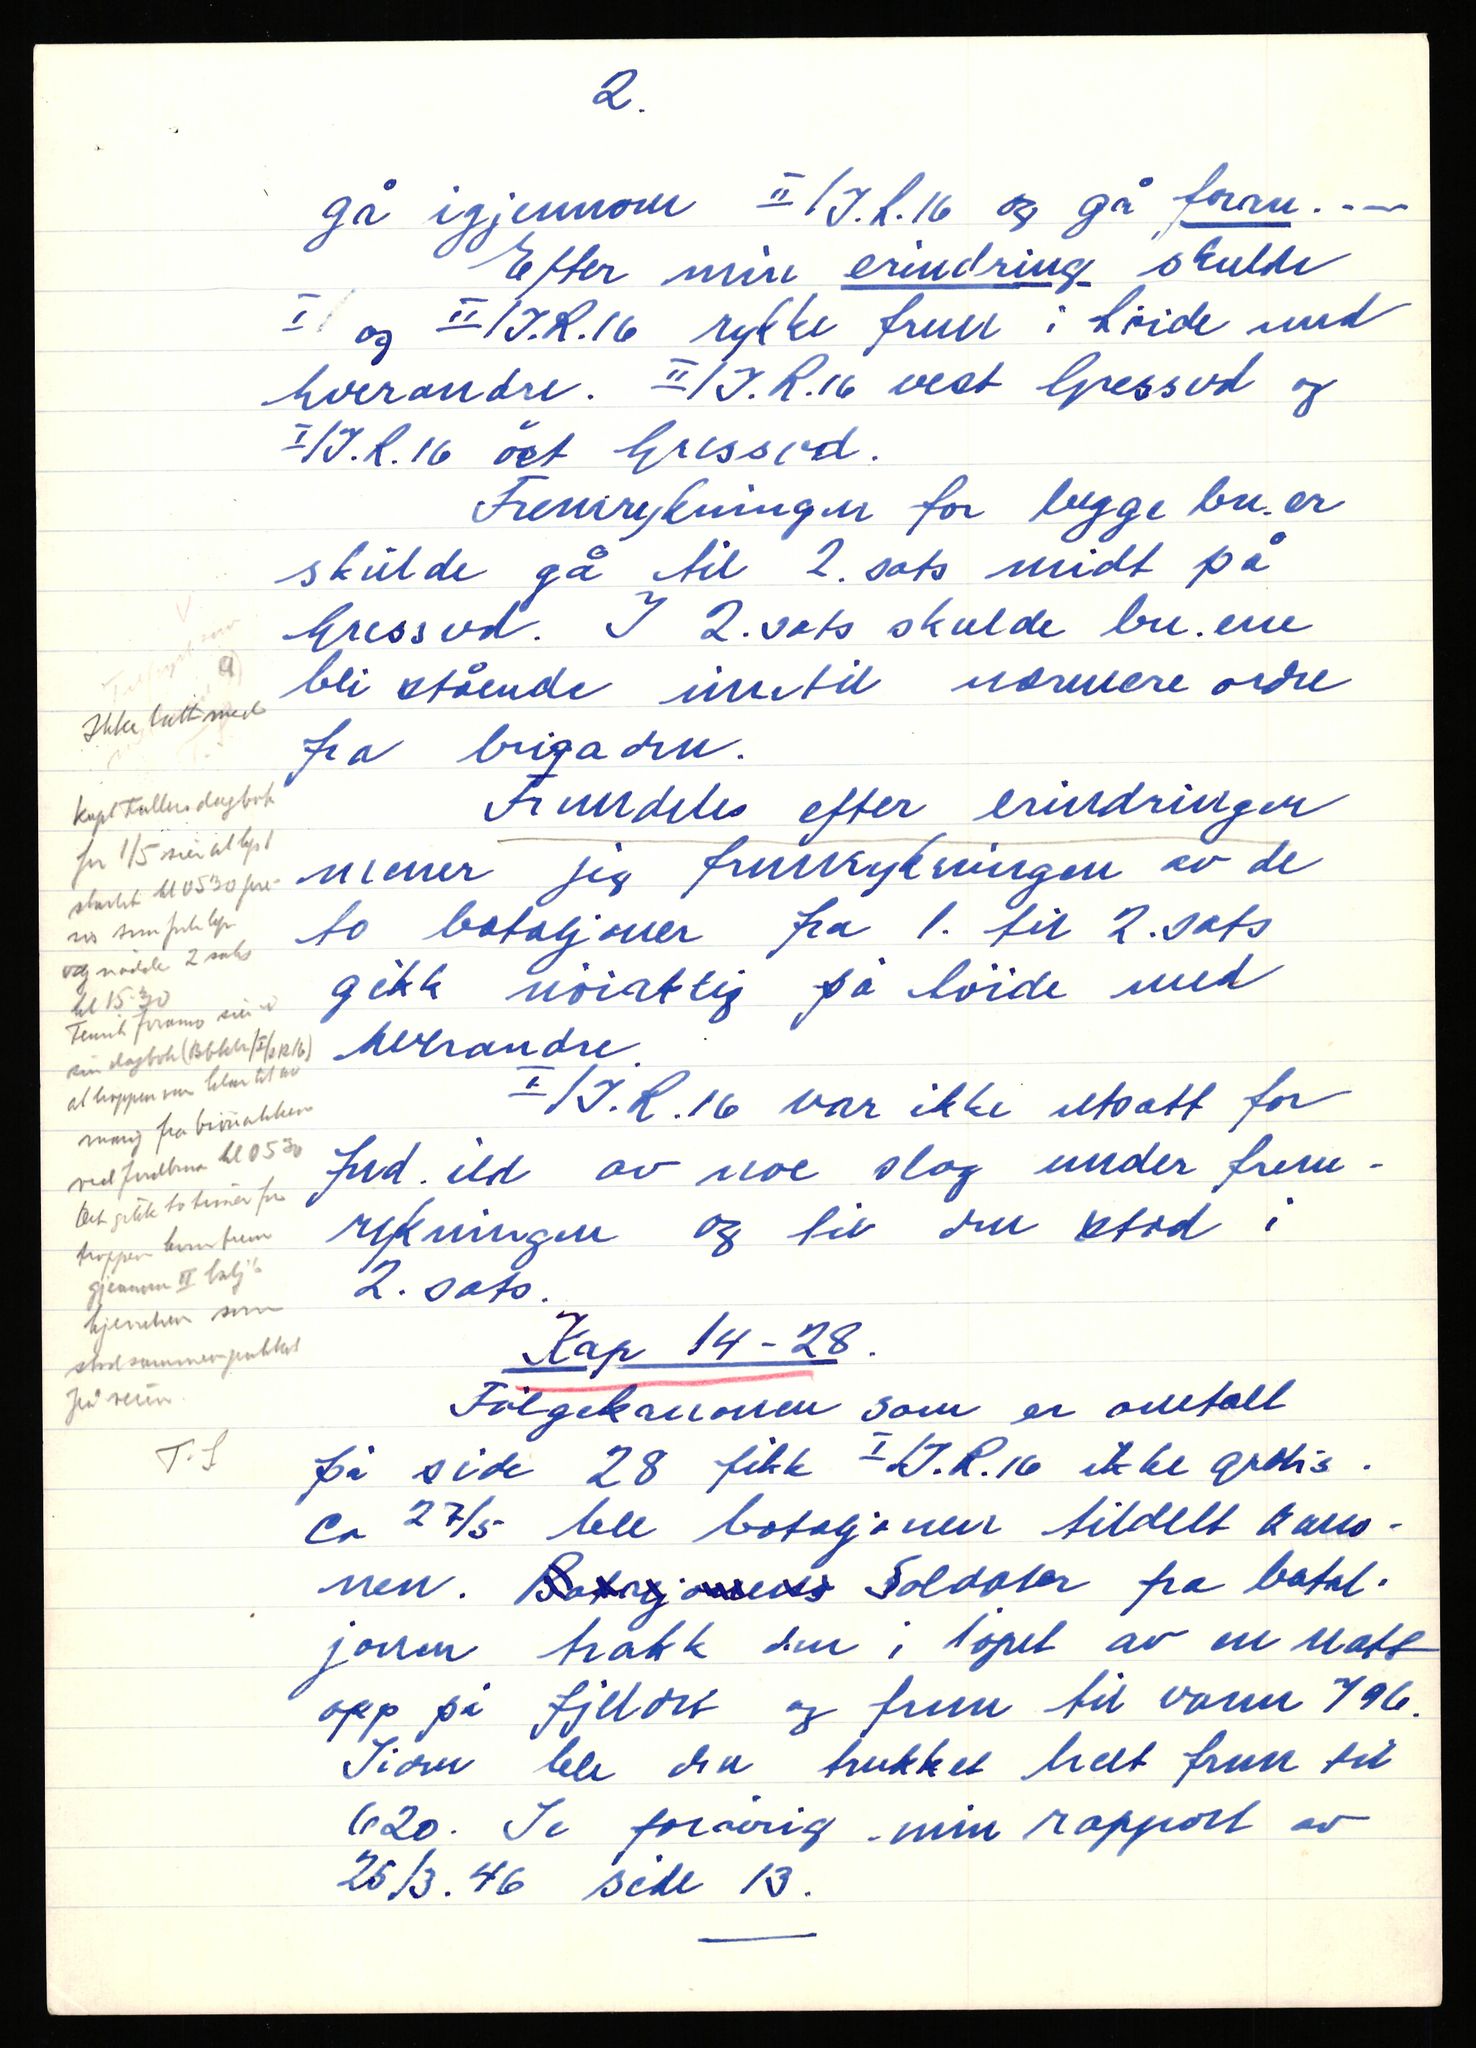 2.
gå igjennom II/I.R.16 og gå foran. - —
Efter min erindring skulde
I/ og II/I.R.16 rykke frem i höide med
hverandre. II/I.R.16 vest Gressvd og
I/I.R.16 öst Gressvd.
Fremrykningen for begge bn.er
skulde gå til 2. sats midt på
Gressvd. I 2. sats skulde bn.ene
bli stående inntil nærmere ordre
fra brigaden.
Fremdeles efter erindringen
mener jeg fremrykningen av de
to bataljoner fra 1. til 2. sats
gikk nöiaktig på höide med
hverandre.
I/I.R.16 var ikke utsatt for
fnd. ild av noe slag under frem-
rykningen og til den stod i
2. sats.
Kap 14-28.
Fölgekanonen som er omtalt
på side 28 fikk I/I.R.16 ikke gratis.
Ca 27/5 ble bataljonen tildelt kano-
nen. Bataljonens Soldater fra batal-
jonen trakk den i löpet av en natt
opp på fjellet og frem til vann 796.
Siden ble den trukket helt frem til
620. Se forövrig min rapport av
25/3.46 side 13.
Ikke tatt med
Kapt dagbok
for 1/5 sier at
startet kl 0530
som
og nådde 2 sats
kl 15.30
sier i
sin dagbok
at troppen var klar til av
marsj fra
ved kl 0530
Det gikk to timer för
troppen kom frem
gjennom II
som
stod sammenpakket
på veien.
T.S